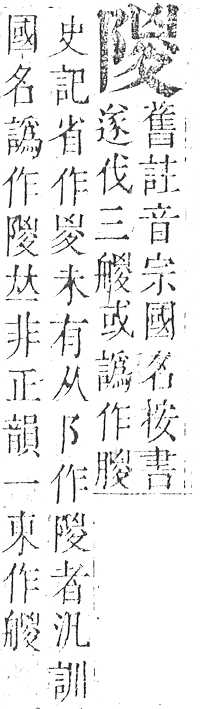 舊註音宗國名按書
遂伐三艐或譌作朡
史記省作㚇未有从阝作者汎訓
國名譌作𠀤非正韻一東作艐